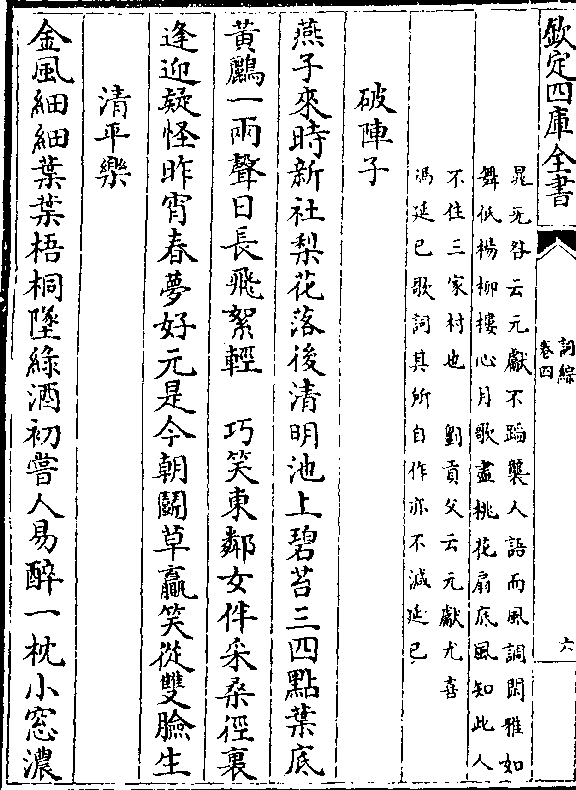 欽定四庫全書
詞綜
卷四
六
晁无咎云元獻不蹈襲人語而風調閒雅如
舞低楊柳樓心月歌盡桃花扇底風知此人
不住三家村也　劉貢父云元獻尤喜
馮延巳歌詞其所自作亦不減延巳
破陣子
燕子來時新社梨花落後清明池上碧苔三四點葉底
黃鸝一兩聲日長飛絮輕　巧笑東鄰女伴采桑徑裏
逢迎疑怪昨宵春夢好元是今朝鬭草贏笑從雙臉生
清平樂
金風細細葉葉梧桐墜綠酒初嘗人易醉一枕小窓濃